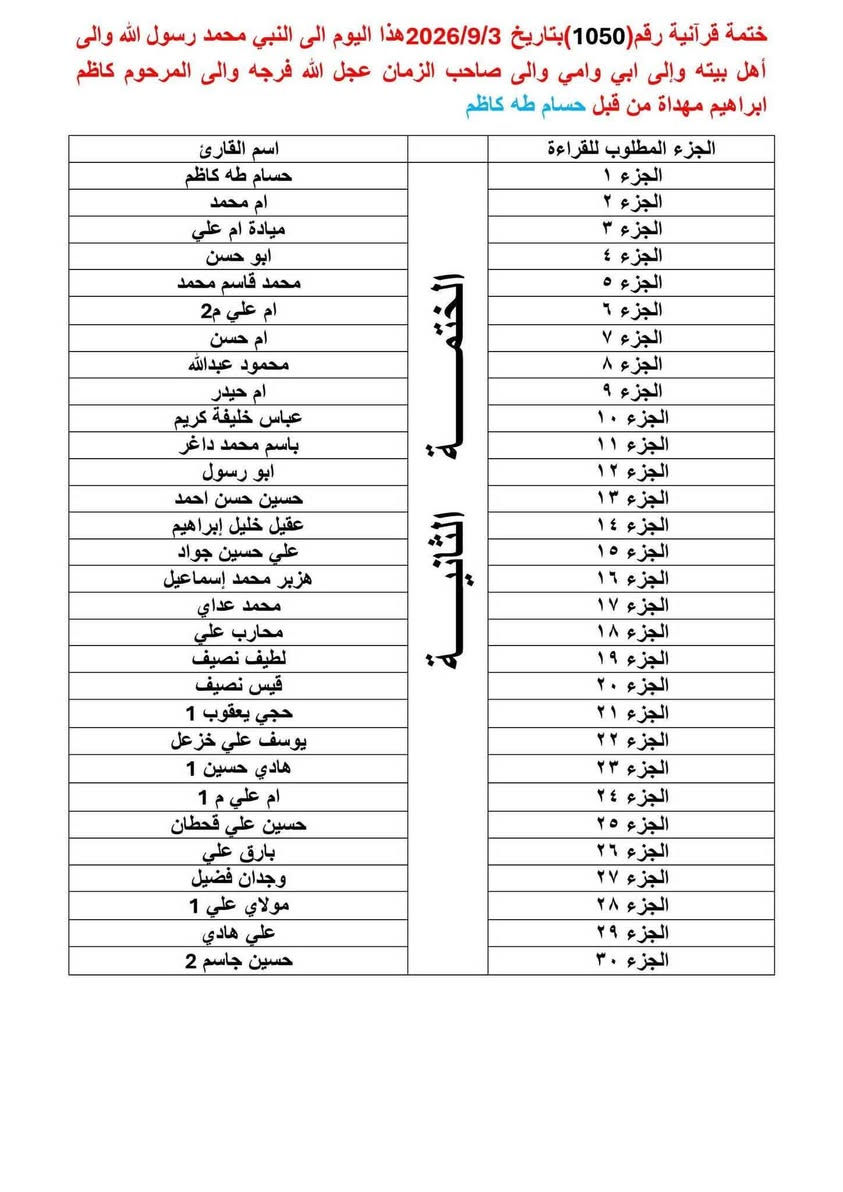 ختمة قرآنية رقم(1050)بتاريخ 2026/9/3هذا اليوم الى النبي محمد رسول الله والى
أهل بيته وإلى ابي وامي والى صاحب الزمان عجل الله فرجه والى المرحوم كاظم
ابراهيم مهداة من قبل حسام طه كاظم
الجزء المطلوب للقراءة اسم القارئ
الجزء ١ حسام طه كاظم
الجزء ٢ ام محمد
الجزء ٣ ميادة ام علي
الجزء ٤ ابو حسن
الجزء ٥ محمد قاسم محمد
الجزء ٦ ام علي م2
الجزء ٧ ام حسن
الجزء ٨ محمود عبدالله
الجزء ٩ ام حيدر
الجزء ١٠ عباس خليفة كريم
الجزء ١١ باسم محمد داغر
الجزء ١٢ ابو رسول
الجزء ١٣ حسين حسن احمد
الجزء ١٤ عقيل خليل إبراهيم
الجزء ١٥ علي حسين جواد
الجزء ١٦ هزبر محمد إسماعيل
الجزء ١٧ محمد عداي
الجزء ١٨ محارب علي
الجزء ١٩ لطيف نصيف
الجزء ٢٠ قيس نصيف
الجزء ٢١ حجي يعقوب 1
الجزء ٢٢ يوسف علي خزعل
الجزء ٢٣ هادي حسين 1
الجزء ٢٤ ام علي م 1
الجزء ٢٥ حسين علي قحطان
الجزء ٢٦ بارق علي
الجزء ٢٧ وجدان فضيل
الجزء ٢٨ مولاي علي 1
الجزء ٢٩ علي هادي
الجزء ٣٠ حسين جاسم 2
الختمـــــــة الثانيـــــة